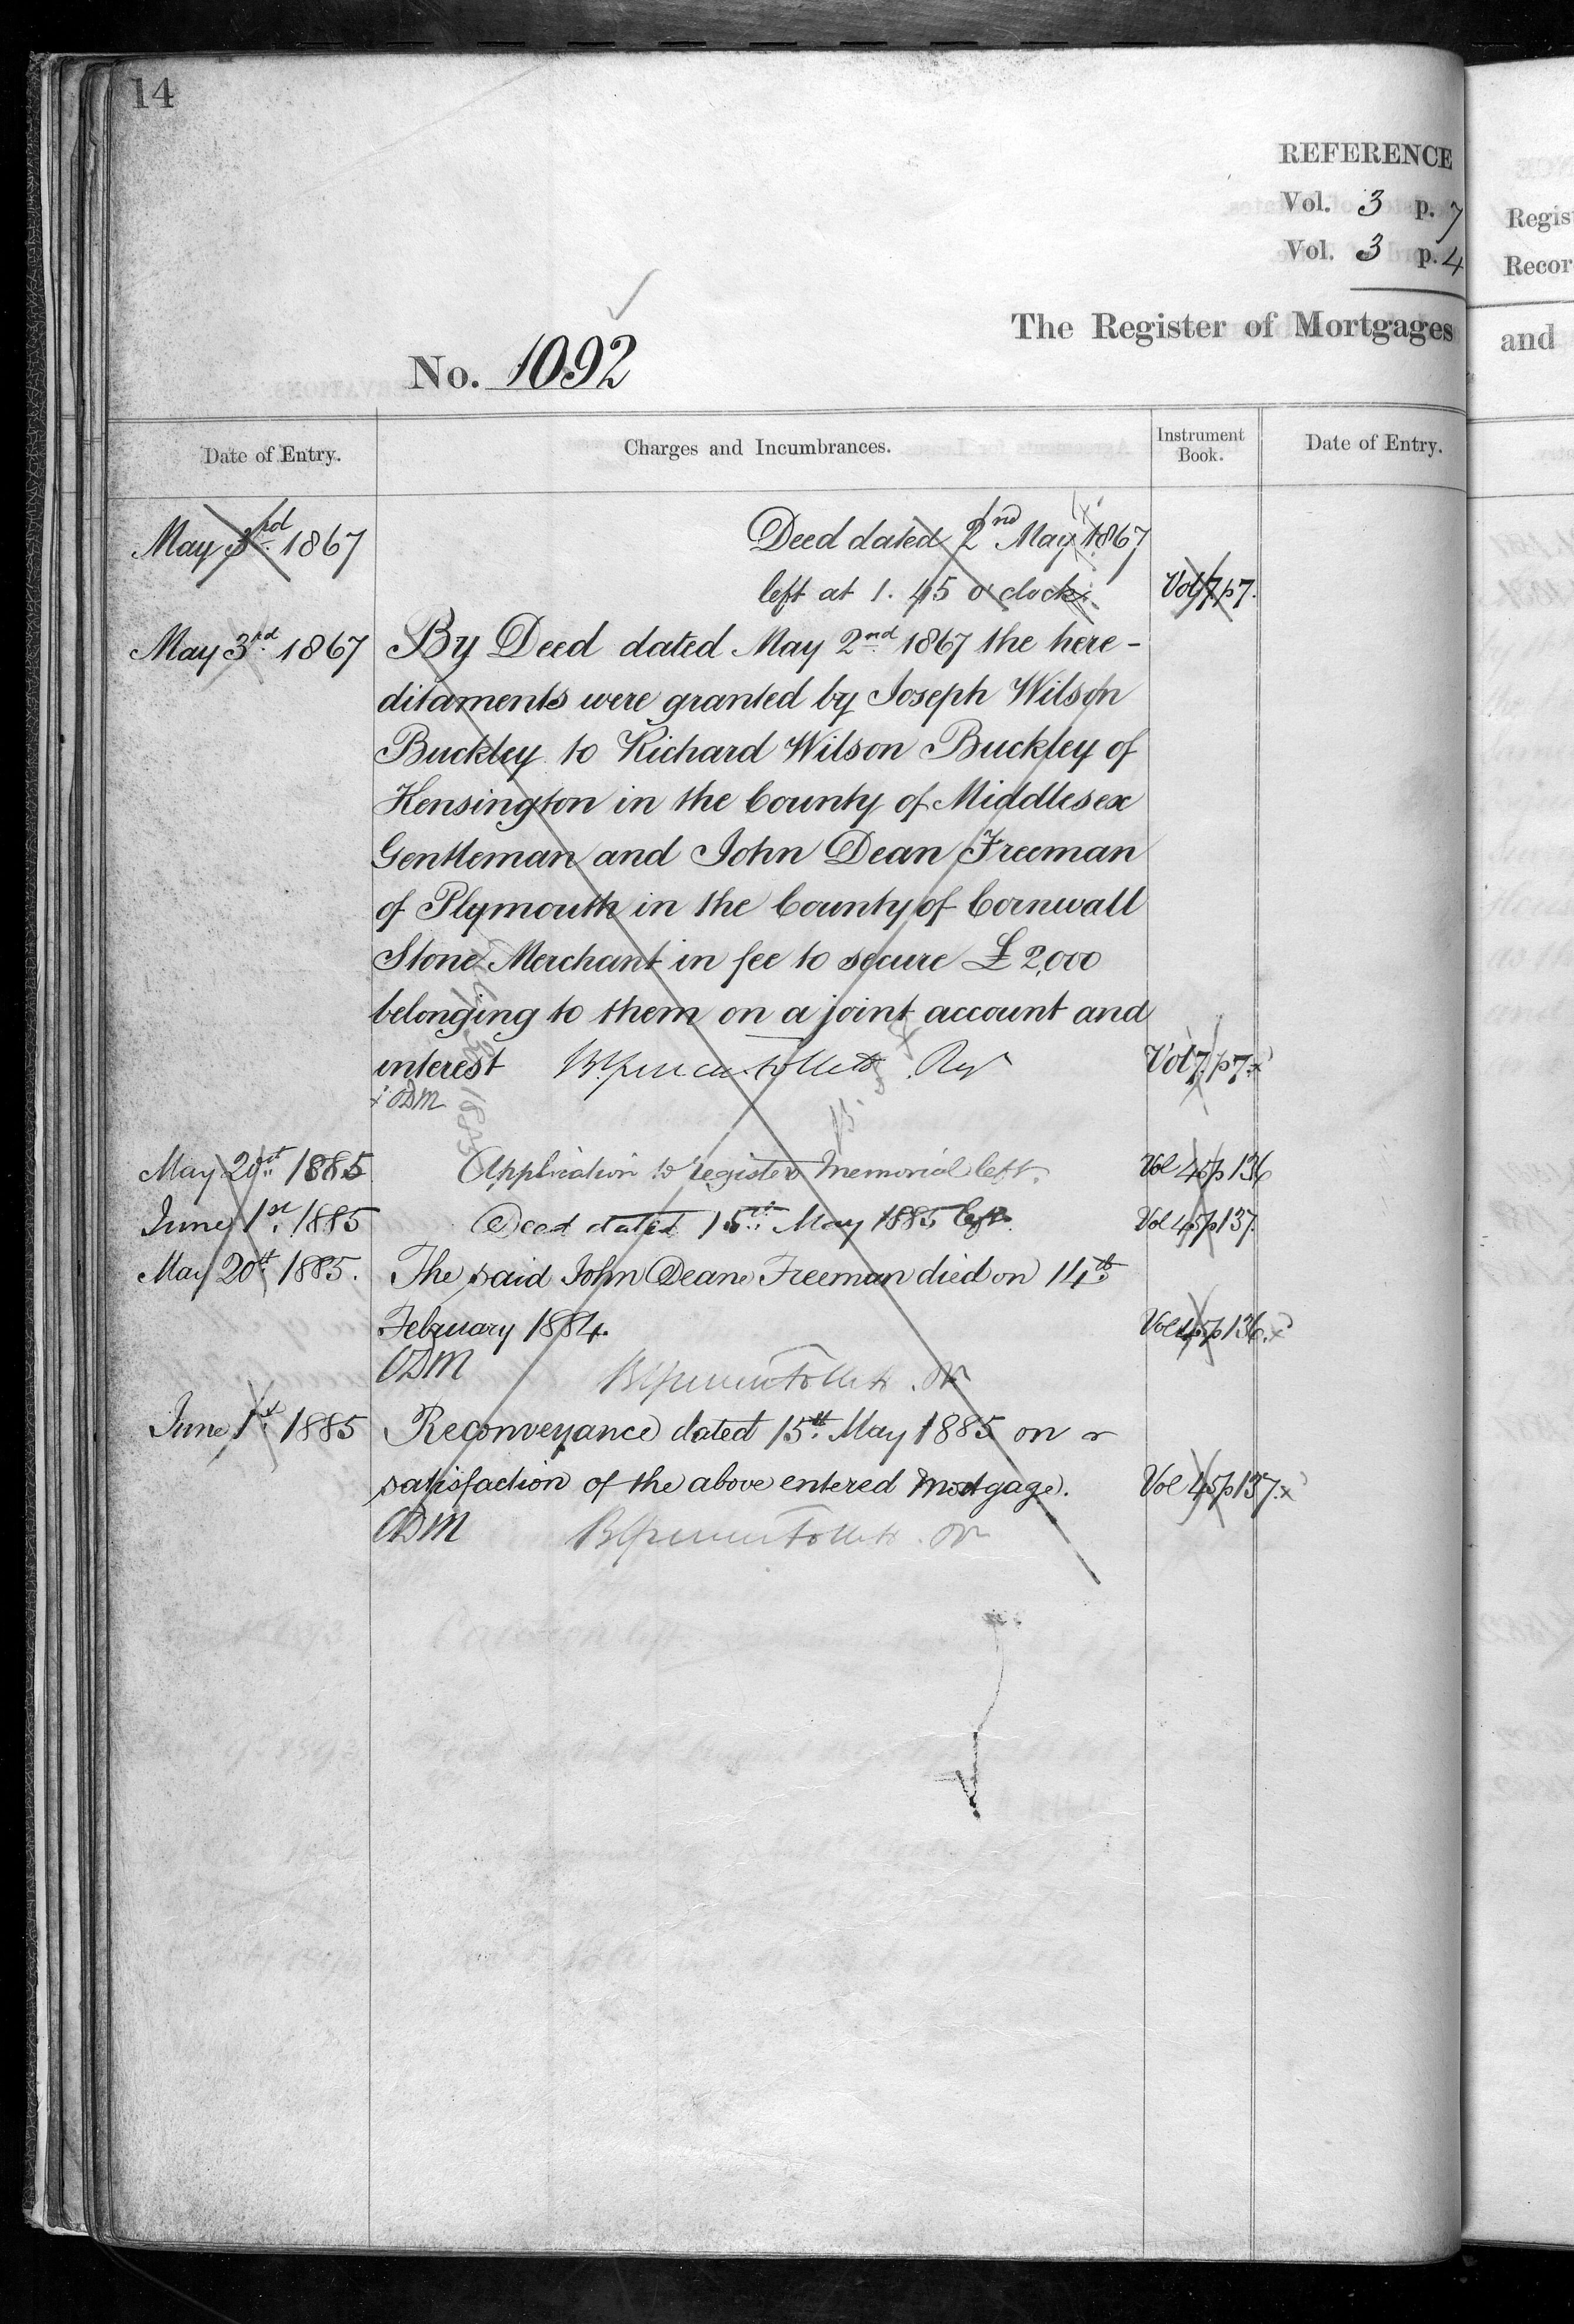 14
REFERENCE
Vol. 3 p. 7
Vol. 3 p. 4
The Register of Mortgages
No. 1092
Date of Entry.
Charges and Incumbrances.
Instrument Book.
Date of Entry.
May 3rd 1867
Deed dated 2nd May 1867
left at 1.45 o'clock
Vol 7 p 7.
May 3rd 1867 By Deed dated May 2nd 1867 the here-
ditaments were granted by Joseph Wilson
Buckley to Richard Wilson Buckley of
Kensington in the County of Middlesex
Gentleman and John Dean Freeman
of Plymouth in the County of Cornwall
Stone Merchant in fee to secure £2,000
belonging to them on a joint account and
interest
Vol 7. p 7.
ODM
May 20th 1885 Application to register Memorial left. Vol 45 p 136
June 1st 1885 Deed dated 15th May 1885 left. Vol 45 p 137.
May 20th 1885. The said John Deane Freeman died on 14th
February 1884. Vol 45 p 136.
ODM
June 1st 1885 Reconveyance dated 15th May 1885 on
satisfaction of the above entered Mortgage. Vol 45 p 137.
ODM
Regist
Recor
and